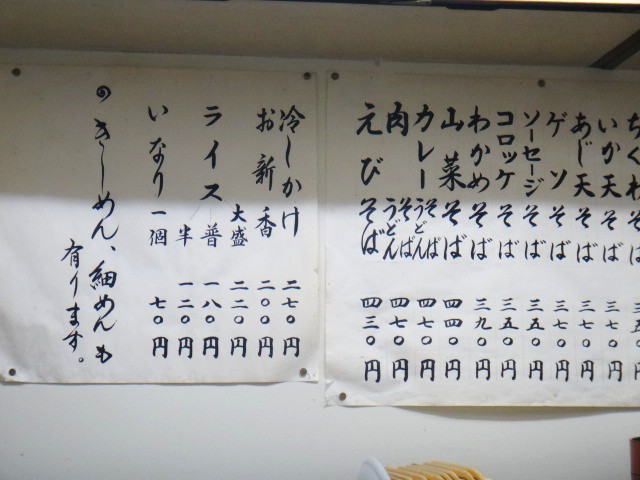 ちくわ
いか天そば 三七〇円
あじ天そば 三七〇円
ゲソそば 三七〇円
ソーセージそば 三五〇円
コロッケそば 三五〇円
わかめそば 三九〇円
山菜そば 四四〇円
カレーそばうどん 四七〇円
肉そばうどん 四七〇円
えびそば 四三〇円
冷しかけ 二七〇円
お新香 二〇〇円
大盛 二二〇円
ライス 普 一八〇円
半 一二〇円
いなり一個 七〇円
◎きしめん、細めんも
有ります。